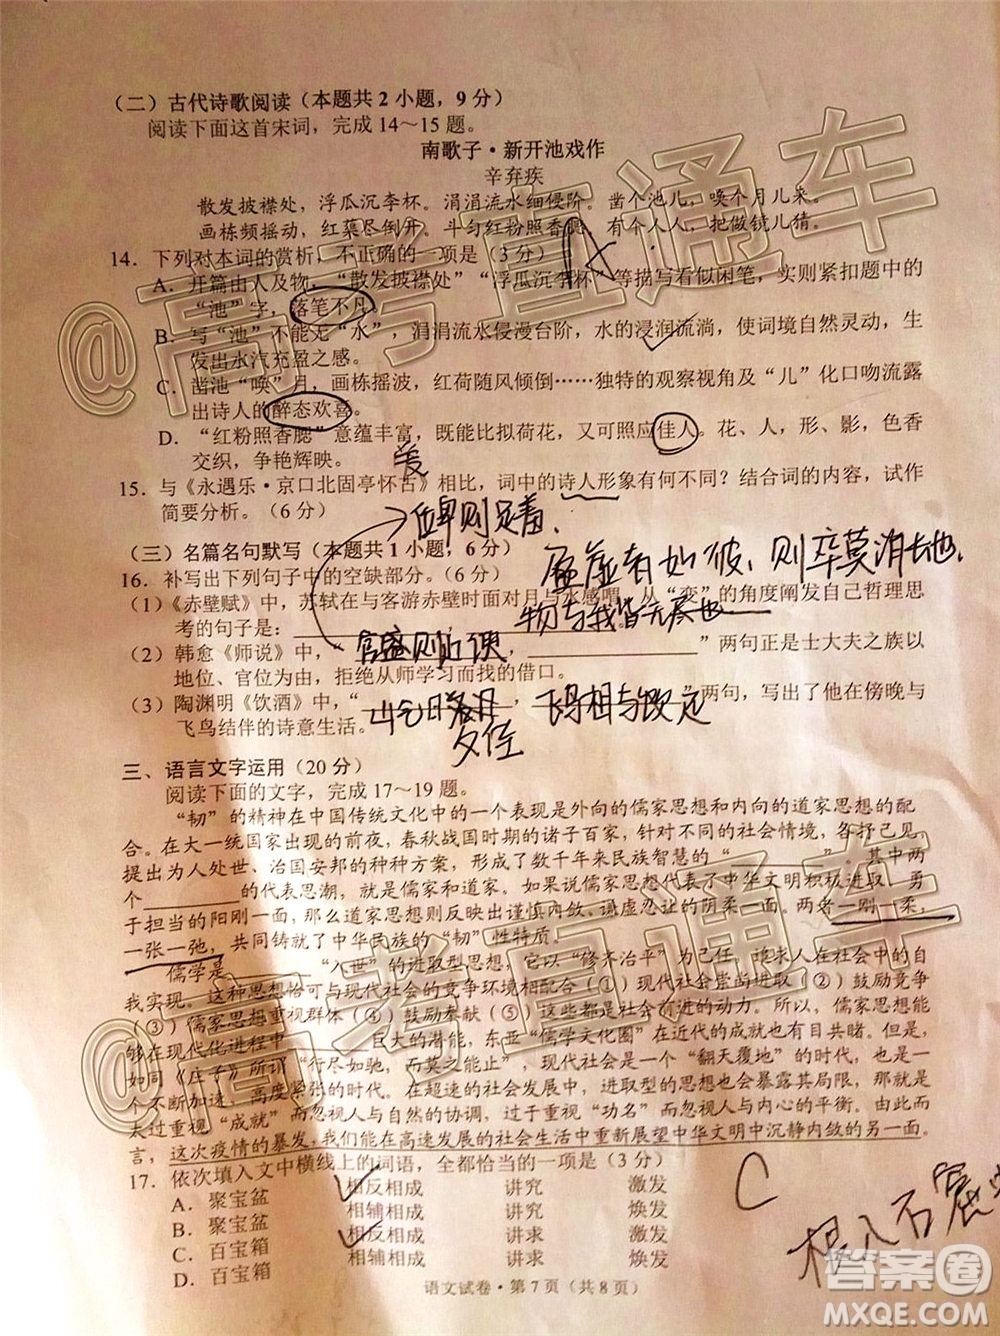 （二）古代诗歌阅读（本题共2小题，9分）
阅读下面这首宋词，完成14～15题。
南歌子·新开池戏作
辛弃疾
散发披襟处，浮瓜沉李杯。涓涓流水细侵阶。凿个池儿，唤个月儿来。
画栋频摇动，红蕖尽倒开。斗匀红粉照香腮。有个人人，把做镜儿猜。
14．下列对本词的赏析，不正确的一项是（3分）
A
A．开篇由人及物，“散发披襟处”“浮瓜沉李杯”等描写看似闲笔，实则紧扣题中的
“池”字，落笔不凡。
B．写“池”不能无“水”，涓涓流水侵漫台阶，水的浸润流淌，使词境自然灵动，生
发出水汽充盈之感。
C．凿池“唤”月，画栋摇波，红荷随风倾倒……独特的观察视角及“儿”化口吻流露
出诗人的醉态欢喜。
D．“红粉照香腮”意蕴丰富，既能比拟荷花，又可照应佳人。花、人，形、影，色香
交织，争艳辉映。
15．与《永遇乐·京口北固亭怀古》相比，词中的诗人形象有何不同？结合词的内容，试作
简要分析。（6分）
位卑则足羞．
（三）名篇名句默写（本题共1小题，6分）
盈虚者如彼，则卒莫消长也．
16．补写出下列句子中的空缺部分。（6分）
（1）《赤壁赋》中，苏轼在与客游赤壁时面对月与水感喟，从“变”的角度阐发自己哲理思
考的句子是：
物与我皆无尽也
（2）韩愈《师说》中，“官盛则近谀，”两句正是士大夫之族以
地位、官位为由，拒绝从师学习而找的借口。
（3）陶渊明《饮酒》中，“山气日夕佳，飞鸟相与还”两句，写出了他在傍晚与
飞鸟结伴的诗意生活。
三、语言文字运用（20分）
阅读下面的文字，完成17～19题。
“韧”的精神在中国传统文化中的一个表现是外向的儒家思想和内向的道家思想的配
合。在大一统国家出现的前夜，春秋战国时期的诸子百家，针对不同的社会情境，各抒己见，
提出为人处世、治国安邦的种种方案，形成了数千年来民族智慧的“”。其中两
个的代表思潮，就是儒家和道家。如果说，儒家思想代表了中华文明积极进取、勇
于担当的阳刚一面，那么道家思想则反映出谨慎内敛、谦虚忍让的阴柔一面。两者一刚一柔，
一张一弛，共同铸就了中华民族的“韧”性特质。
儒学是“入世”的进取型思想，它以“修齐治平”为己任，追求人在社会中的
。这种思想恰可与现代社会的竞争环境相配合（①）现代社会崇尚进取（②）鼓励竞争
（③）儒家思想重视群体（④）鼓励奉献（⑤）这些都有巨大的动力。所以，儒家思想能
够在现代化进程中巨大的潜能，东亚“儒学文化圈”在近代的成功有目共睹。但是，
如同《庄子》所讲“行尽如驰，而莫之能止”，现代社会是一个“翻天覆地”的时代，是一
个不断加速、高度紧张的时代。在超速的社会发展中，进取型的思想也会暴露其局限，即
过于重视“成就”而忽视人与自然的协调，过于重视“功名”而忽视人与内心的平衡。由
此，这次疫情的暴发，我们能在高速发展的社会生活中重新展望中华文明中沉静内敛的另一面。
17．依次填入文中横线上的词语，全都恰当的一项是（3分）
A．聚宝盆 相反相成 讲究 激发
B．聚宝盆 相辅相成 讲究 焕发
C．百宝箱 相反相成 讲求 激发
D．百宝箱 相辅相成 讲求 焕发
C
语文试卷·第7页（共8页）
答案圈
MXQE.COM
@高考直通车
@高考直通车